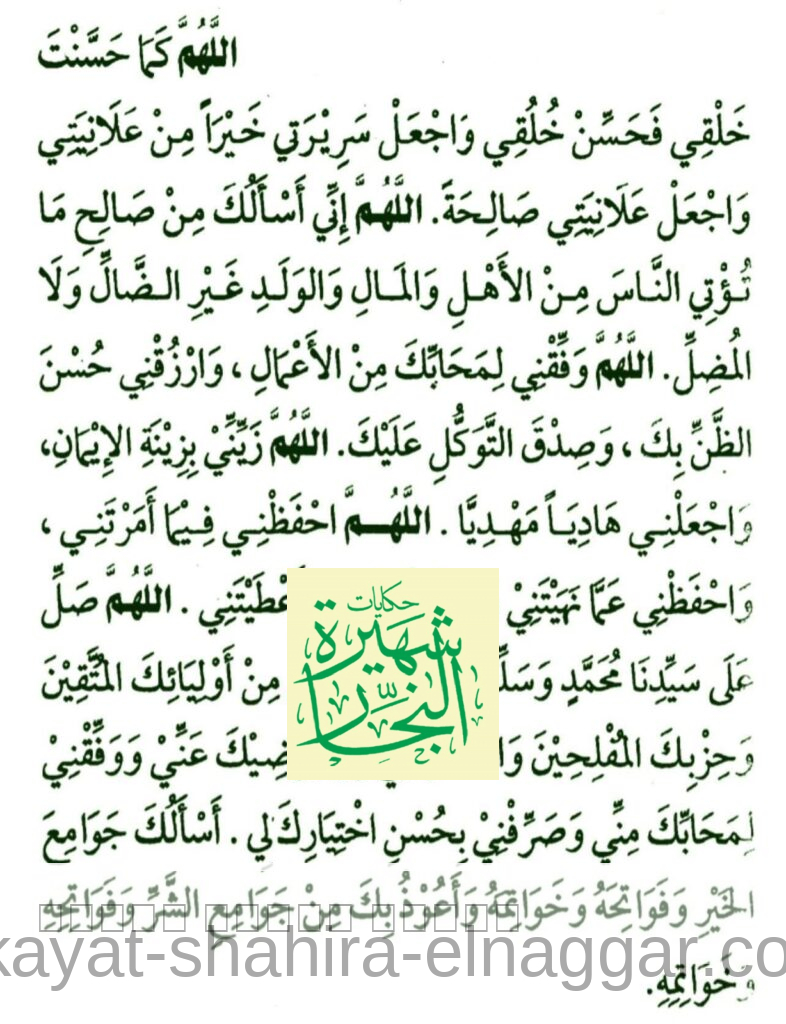 اللَّهُمَّ كَمَا حَسَّنْتَ
خَلْقِي فَحَسِّنْ خُلُقِي وَاجْعَلْ سَرِيْرَتِي خَيْرَاً مِنْ عَلَانِيَتِي
وَاجْعَلْ عَلَانِيَتِي صَالِحَةً. اللَّهُمَّ إِنِّي أَسْأَلُكَ مِنْ صَالِحِ مَا
تُؤْتِي النَّاسَ مِنْ الأَهْلِ وَالمَالِ وَالوَلَدِ غَيْرِ الضَّالِّ وَلَا
المُضِلِّ. اللَّهُمَّ وَفِّقْنِي لِمَحَابِّكَ مِنْ الأَعْمَالِ ، وَارْزُقْنِي حُسْنَ
الظَّنِّ بِكَ ، وَصِدْقَ التَّوَكُّلِ عَلَيْكَ. اللَّهُمَّ زَيِّنِّيْ بِزِيْنَةِ الإِيْمَانِ،
وَاجْعَلْنِي هَادِيَاً مَهْدِيَّا . اللَّهُمَّ احْفَظْنِي فِيْمَا أَمَرْتَنِي ،
وَاحْفَظْنِي عَمَّا نَهَيْتَنِيْ
عْطَيْتَنِي . اللَّهُمَّ صَلِّ
حكايات
شهيرة
النجار
عَلَى سَيِّدِنَا مُحَمَّدٍ وَسَلِّ
مِنْ أَوْلِيَائِكَ المُتَّقِيْنَ
وَحِزْبِكَ المُفْلِحِيْنَ
ضِيْكَ عَنِّيْ وَوَفِّقْنِيْ
لِمَحَابِّكَ مِنِّي وَصَرِّفْنِيْ بِحُسْنِ اخْتِيَارِكَ لي . أَسْأَلُكَ جَوَامِعَ
الخَيْرِ وَفَوَاتِحَهُ وَخَوَاتِمَهُ وَأَعُوْذُ بِكَ مِنْ جَوَامِعِ الشَّرِّ وَفَوَاتِحِهِ
kayat-shahira-elnaggar.co
وَخَوَاتِمِهِ.